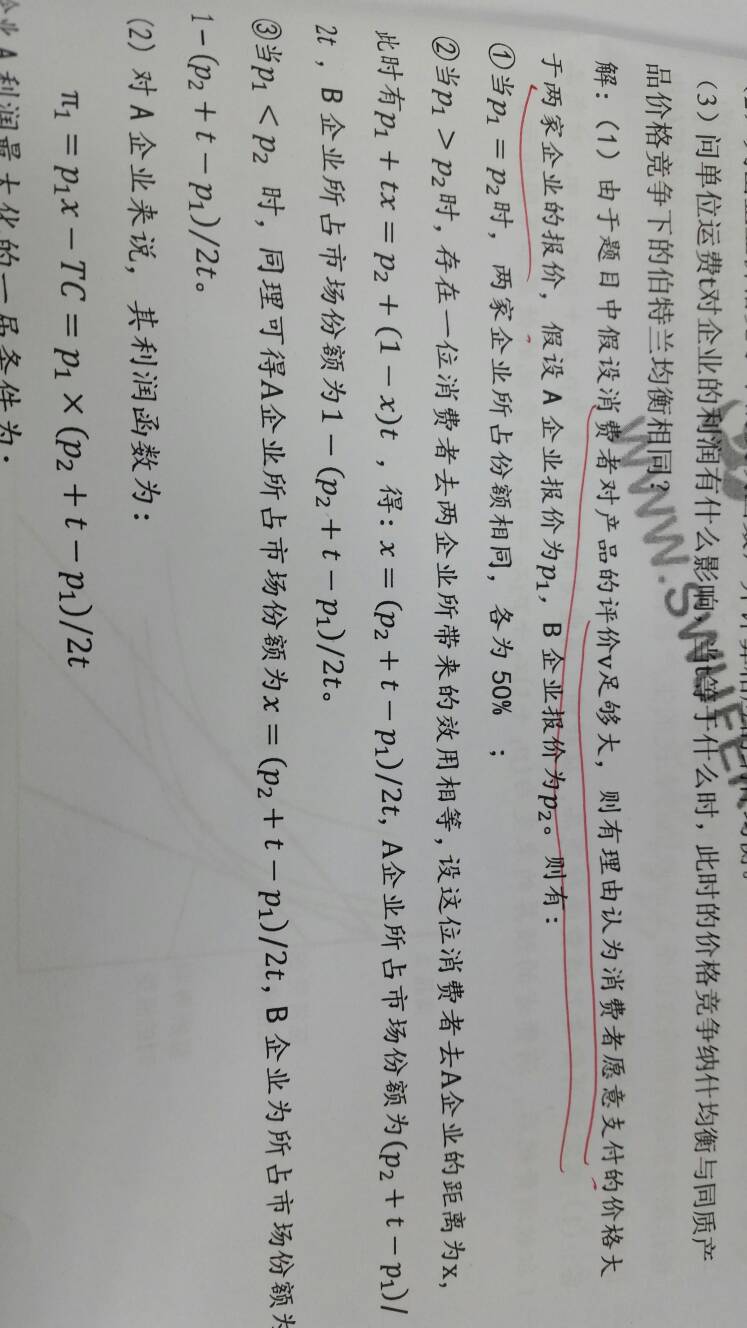 (3）问单位运费t对企业的利润有什么影响，当t等于什么时，此时的价格竞争纳什均衡与同质产
品价格竞争下的伯特兰均衡相同？
WWW.SWUFE
解：(1）由于题目中假设消费者对产品的评价v足够大，则有理由认为消费者愿意支付的价格大
于两家企业的报价，假设A企业报价为p₁，B企业报价为p₂。则有：
①当p₁ = p₂时，两家企业所占份额相同，各为 50% ；
②当p₁ > p₂时，存在一位消费者去两企业所带来的效用相等，设这位消费者去A企业的距离为x，
此时有p₁ + tx = p₂ + (1 − x)t ，得：x = (p₂ + t − p₁)/2t，A企业所占市场份额为(p₂ + t − p₁)/
2t，B企业所占市场份额为1 − (p₂ + t − p₁)/2t。
③当p₁ < p₂ 时，同理可得A企业所占市场份额为x = (p₂ + t − p₁)/2t，B企业为所占市场份额为
1−(p₂ + t − p₁)/2t。
(2）对A企业来说，其利润函数为：
π₁ = p₁x − TC = p₁ × (p₂ + t − p₁)/2t
企业A利润最大化的一届条件为：